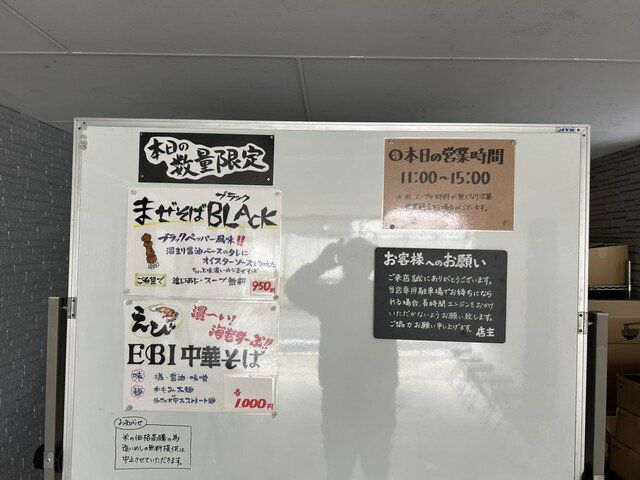 本日の
数量限定
ブラック
まぜそばBLACK
ブラックペッパー風味!!
溜まり醤油ベースのタレに
オイスターソースを加えた
ご希望で
追いめし・スープ無料
950円
えび
濃〜い!
海老すーぷ!!
EBI中華そば
味
塩・醤油・味噌
麺
手もみ太麺
ストレート麺
各
1,000円
お知らせ
米の価格高騰の為
追いめしの無料提供は
中止させていただきます。
本日の営業時間
11:00〜15:00
お客様へのお願い
ご来店誠にありがとうございます。
当店専用駐車場でお待ちになら
れる場合、長時間エンジンをおかけ
いただかないようお願い致します。
ご協力お願い申し上げます。
店主